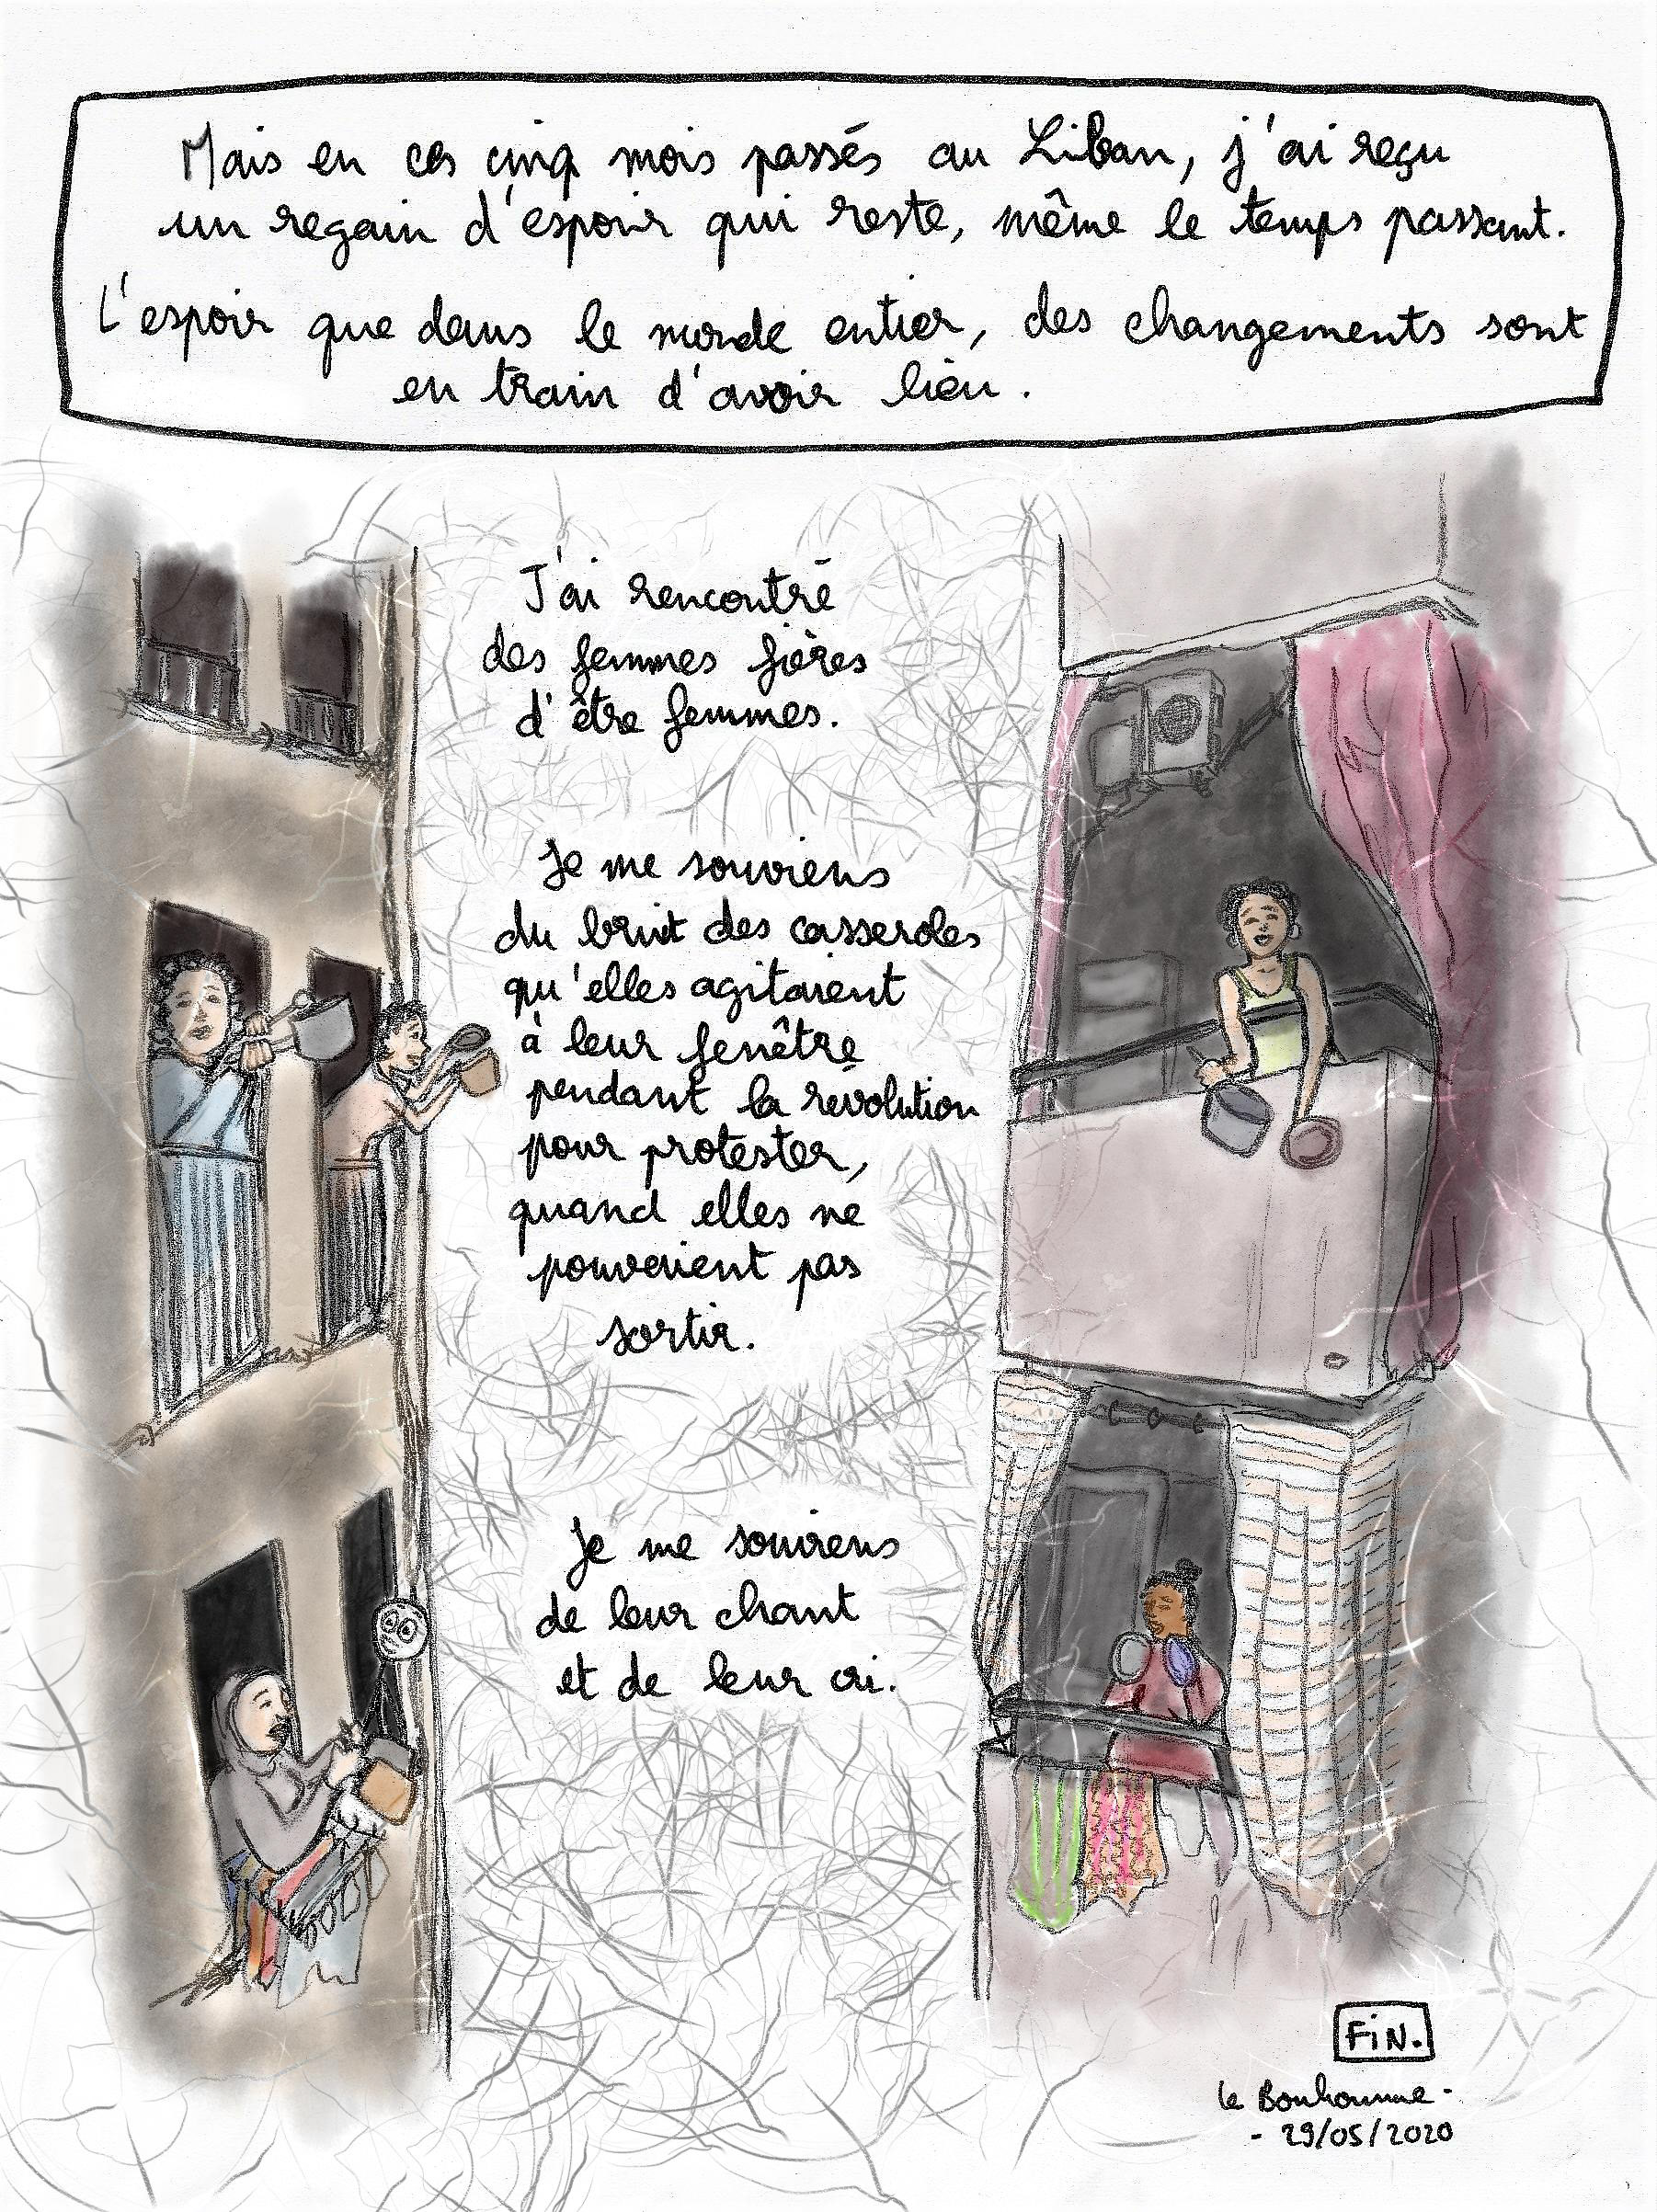 Mais en ces cinq mois passés au Liban, j'ai reçu
un regain d'espoir qui reste, même le temps passant.
L'espoir que dans le monde entier, des changements sont
en train d'avoir lieu.
J'ai rencontré
des femmes fières
d'être femmes.
Je me souviens
du bruit des casseroles
qu'elles agitaient
à leur fenêtre
pendant la révolution
pour protester,
quand elles ne
pouvaient pas
sortir.
Je me souviens
de leur chant
et de leur cri.
FiN.
le Bonhomme -
- 29/05/2020